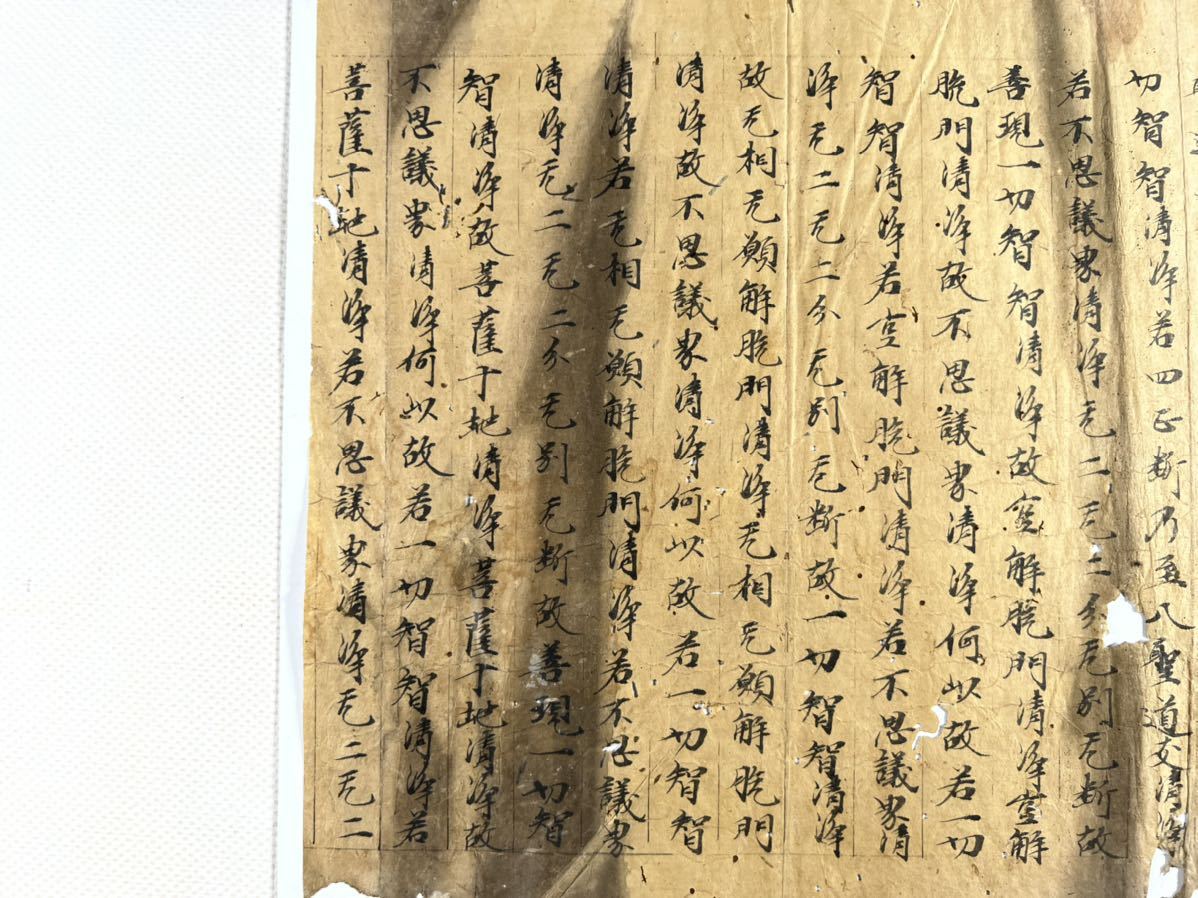 切智智清淨若四正斷乃至八聖道支清淨
若不思議界清淨无二无二分无別无斷故
善現一切智智清淨故空解脫門清淨空解
脫門清淨故不思議界清淨何以故若一切
智智清淨若空解脫門清淨若不思議界清
淨无二无二分无別无斷故一切智智清淨
故无相无願解脫門清淨无相无願解脫門
清淨故不思議界清淨何以故若一切智智
清淨若无相无願解脫門清淨若不思議界
清淨无二无二分无別无斷故善現一切智
智清淨故菩薩十地清淨菩薩十地清淨故
不思議界清淨何以故若一切智智清淨若
菩薩十地清淨若不思議界清淨无二无二